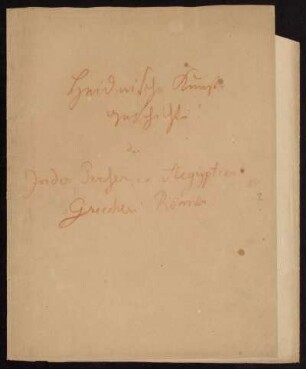 Heidnische Kunst
geschichte
der
Inder Perser Aegypter
Griechen Römer